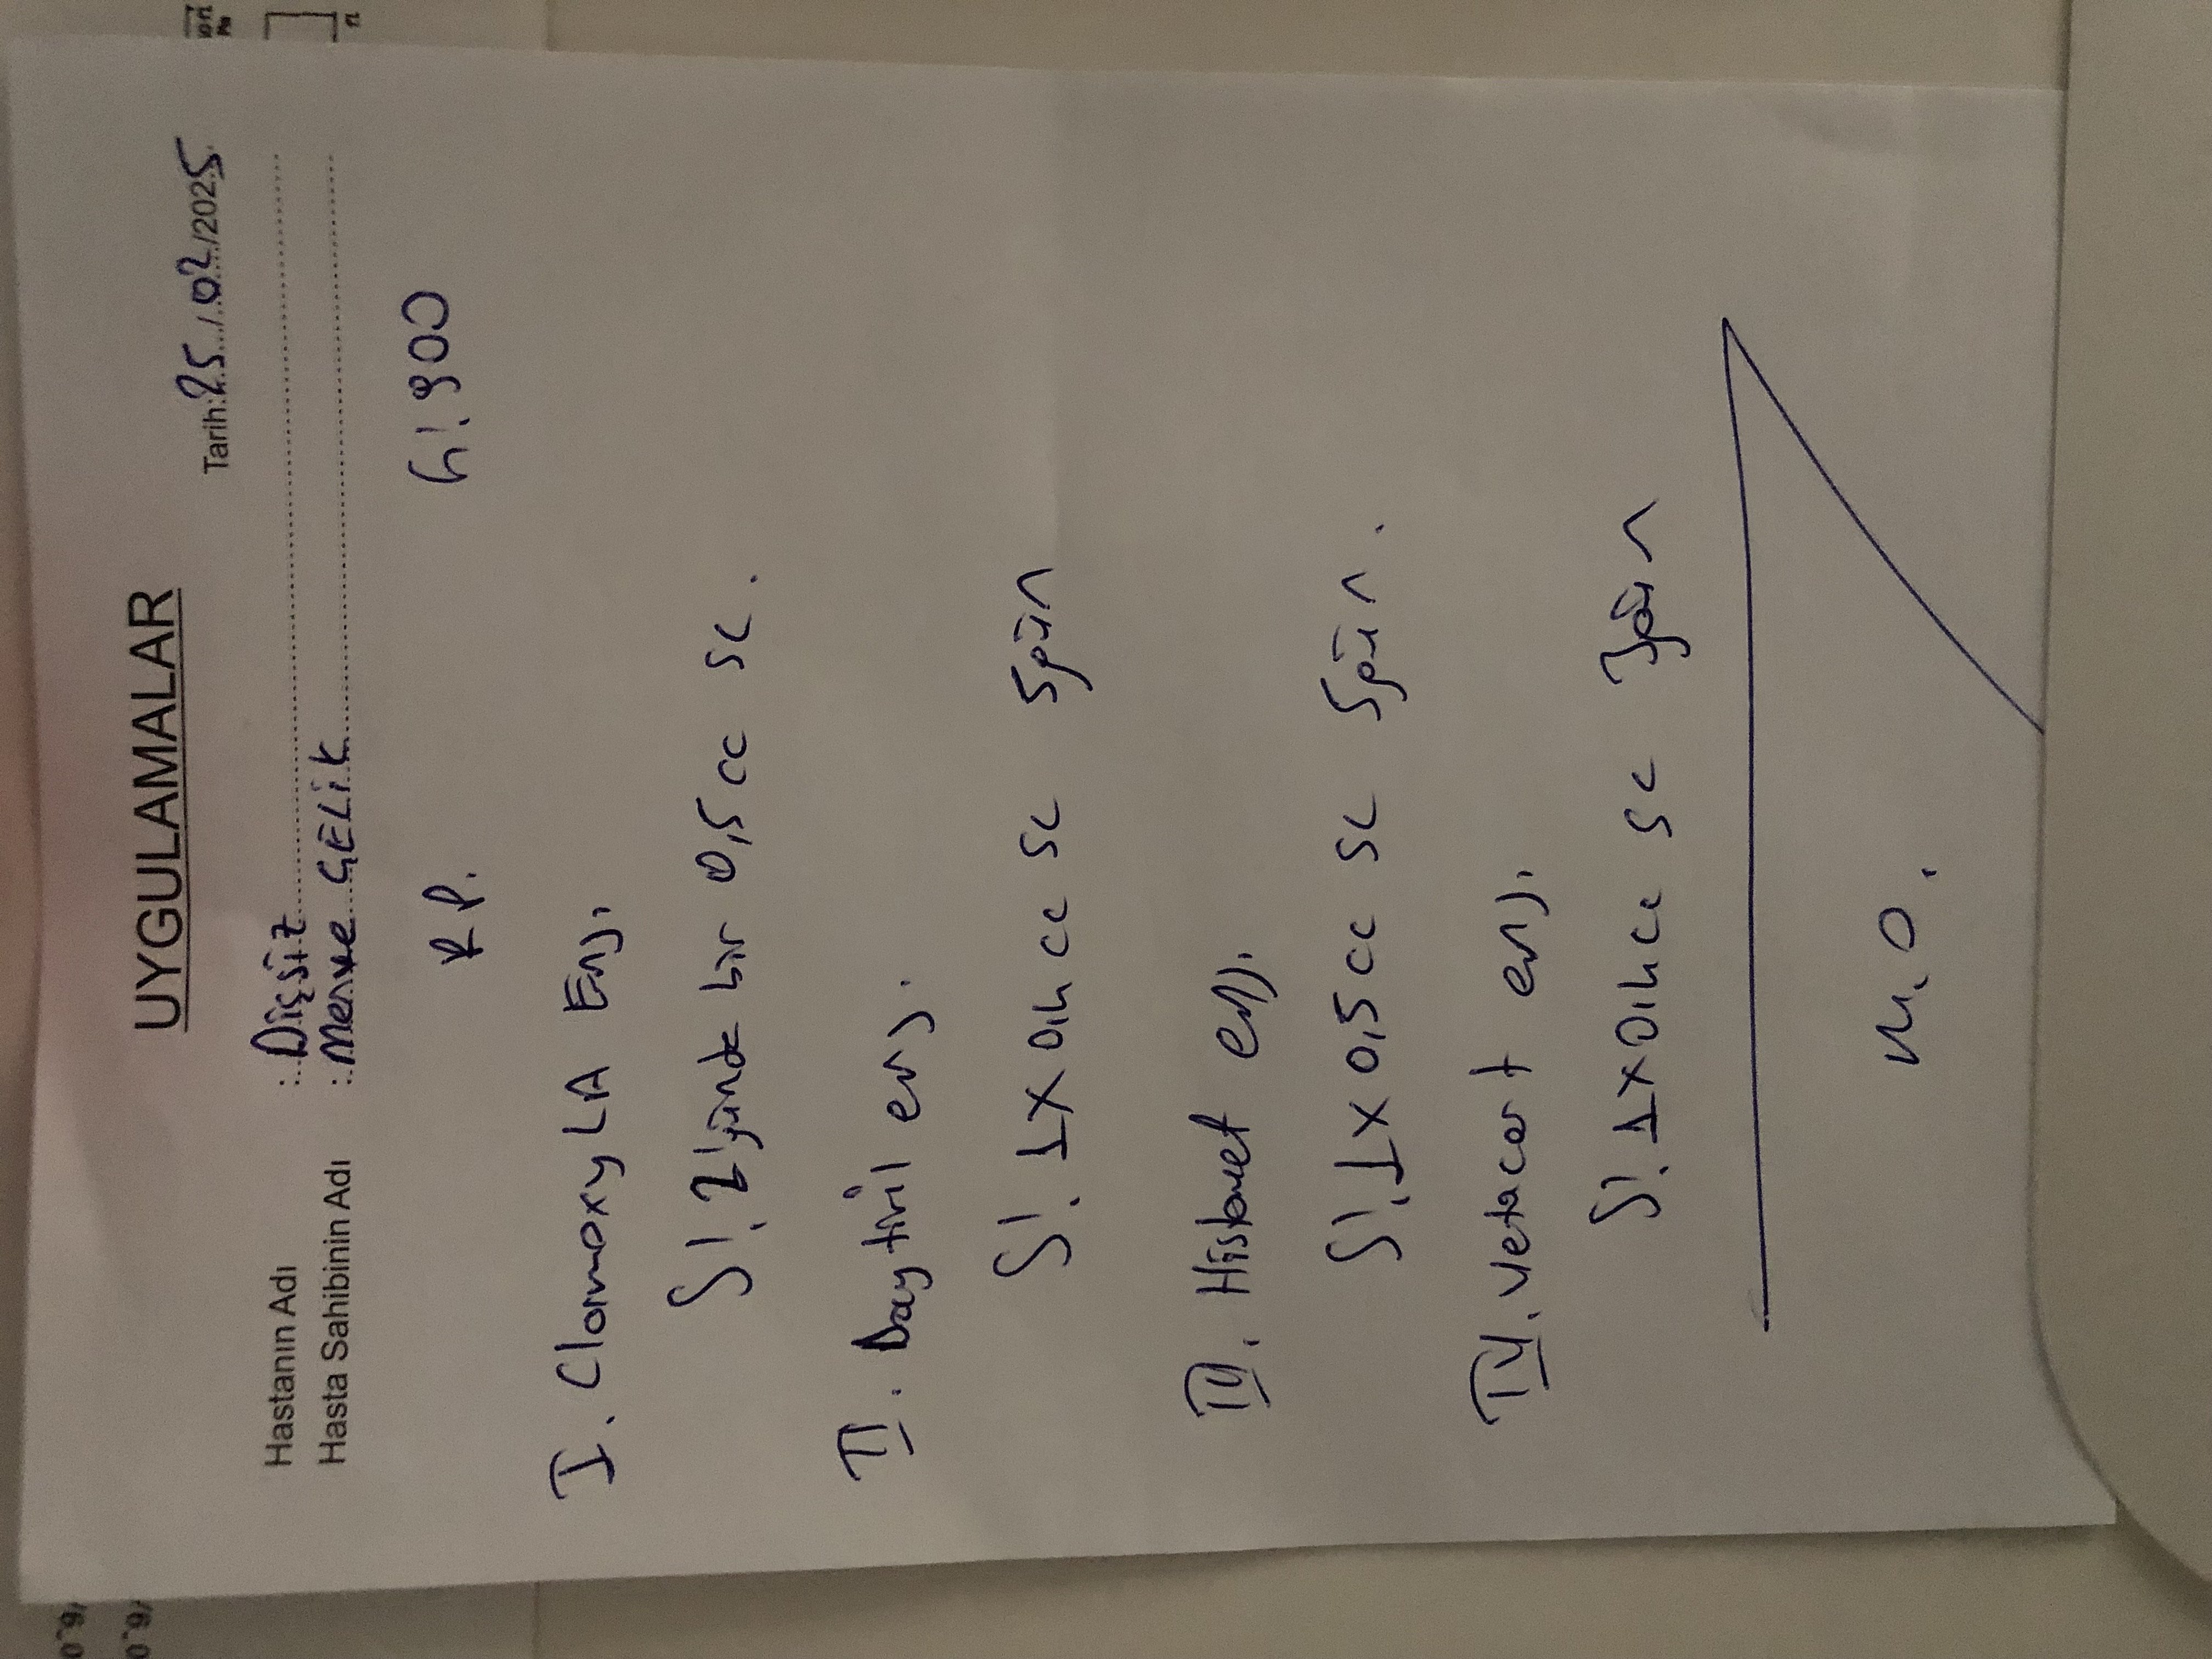 UYGULAMALAR
Tarih: 25/02/2025
Hastanın Adı : Dişsiz
Hasta Sahibinin Adı : Merve ÇELİK
RP. 4,900
I. Clamoxy LA Enj.
S/. 2 günde bir 0,5 cc sc.
II. Baytril enj.
S/. 1x0,4 cc sc 5gün
III. Histavet enj.
S/. 1x0,5 cc sc 5gün.
IV. Vetacort enj.
S/. 1x0,4 cc sc 3gün
M.O.